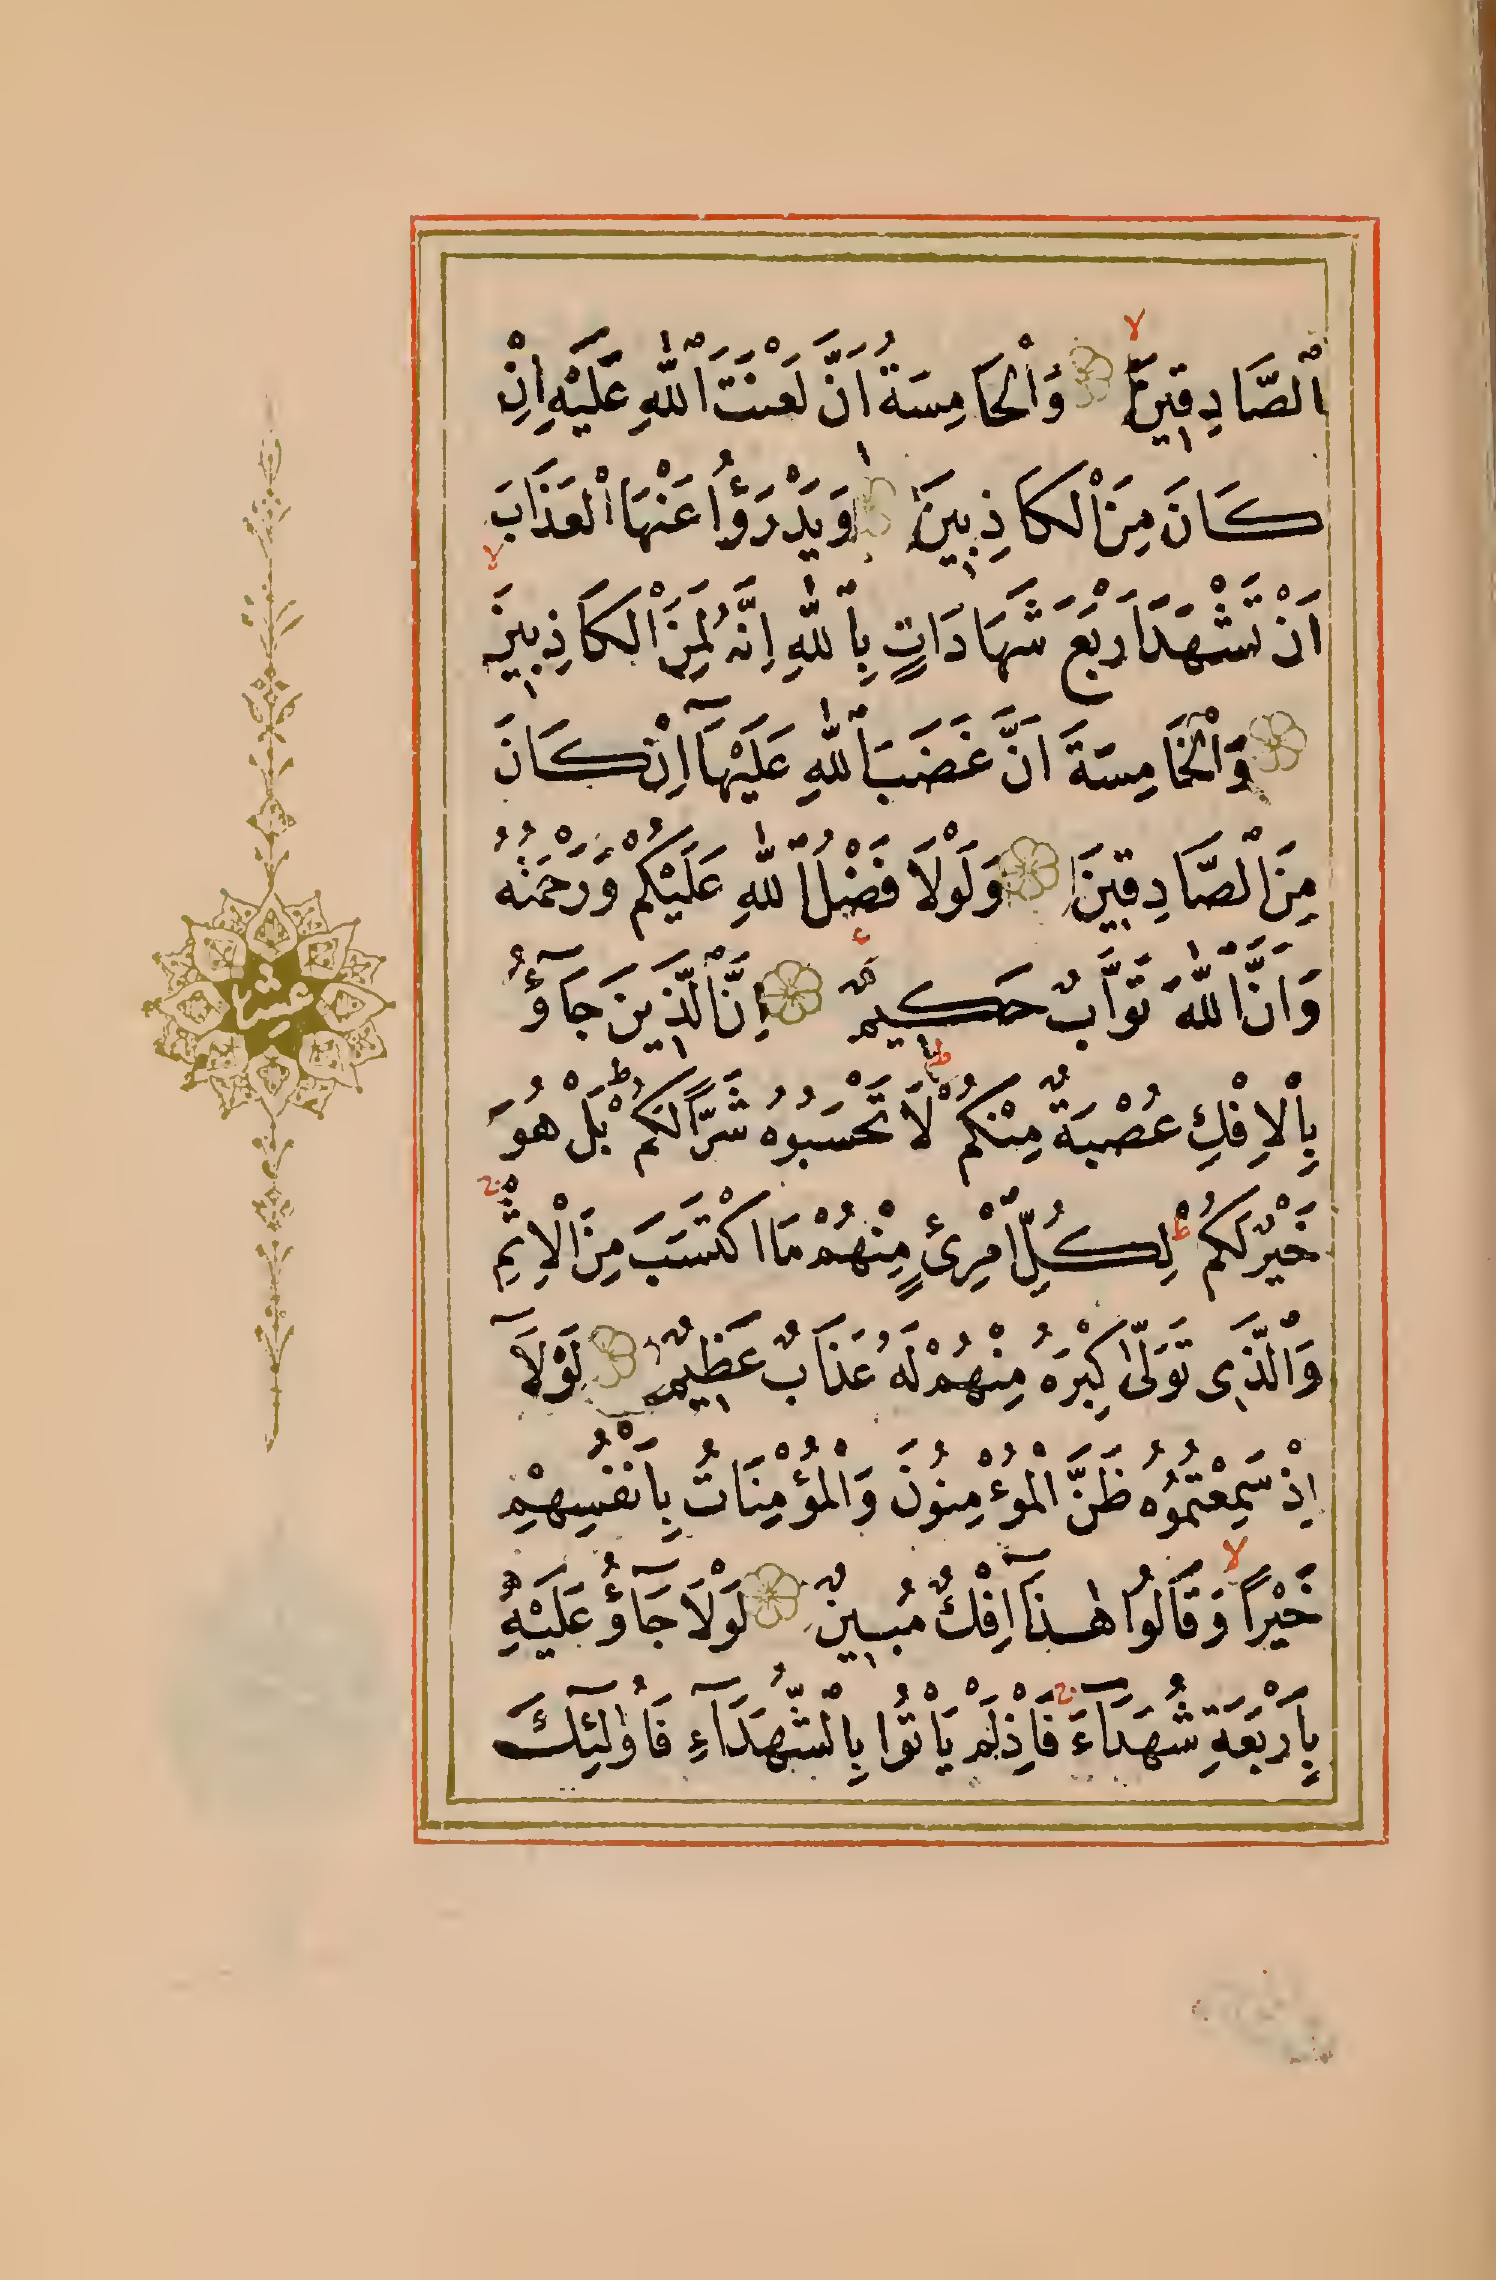 اَلصَّادِقِينَ وَالْخَامِسَةُ اَنَّ لَعْنَتَ اللّٰهِ عَلَيْهِ اِنْ
كَانَ مِنَ الْكَاذِبِينَ وَيَدْرَؤُا عَنْهَا الْعَذَابَ
اَنْ تَشْهَدَ اَرْبَعَ شَهَادَاتٍ بِاللّٰهِ اِنَّهُ لَمِنَ الْكَاذِبِينَ
وَالْخَامِسَةَ اَنَّ غَضَبَ اللّٰهِ عَلَيْهَٓا اِنْ كَانَ
مِنَ الصَّادِقِينَ وَلَوْلَا فَضْلُ اللّٰهِ عَلَيْكُمْ وَرَحْمَتُهُ
وَاَنَّ اللّٰهَ تَوَّابٌ حَكِيمٌ اِنَّ الَّذِينَ جَٓاؤُ
بِالْاِفْكِ عُصْبَةٌ مِنْكُمْ لَا تَحْسَبُوهُ شَرًّا لَكُمْ بَلْ هُوَ
خَيْرٌ لَكُمْ لِكُلِّ امْرِئٍ مِنْهُمْ مَا اكْتَسَبَ مِنَ الْاِثْمِ
وَالَّذِى تَوَلّٰى كِبْرَهُ مِنْهُمْ لَهُ عَذَابٌ عَظِيمٌ لَوْلَٓا
اِذْ سَمِعْتُمُوهُ ظَنَّ الْمُؤْمِنُونَ وَالْمُؤْمِنَاتُ بِاَنْفُسِهِمْ
خَيْرًا وَقَالُوا هٰذَٓا اِفْكٌ مُبِينٌ لَوْلَا جَٓاؤُ عَلَيْهِ
بِاَرْبَعَةِ شُهَدَٓاءَ فَاِذْ لَمْ يَاْتُوا بِالشُّهَدَٓاءِ فَاُولٰٓئِكَ